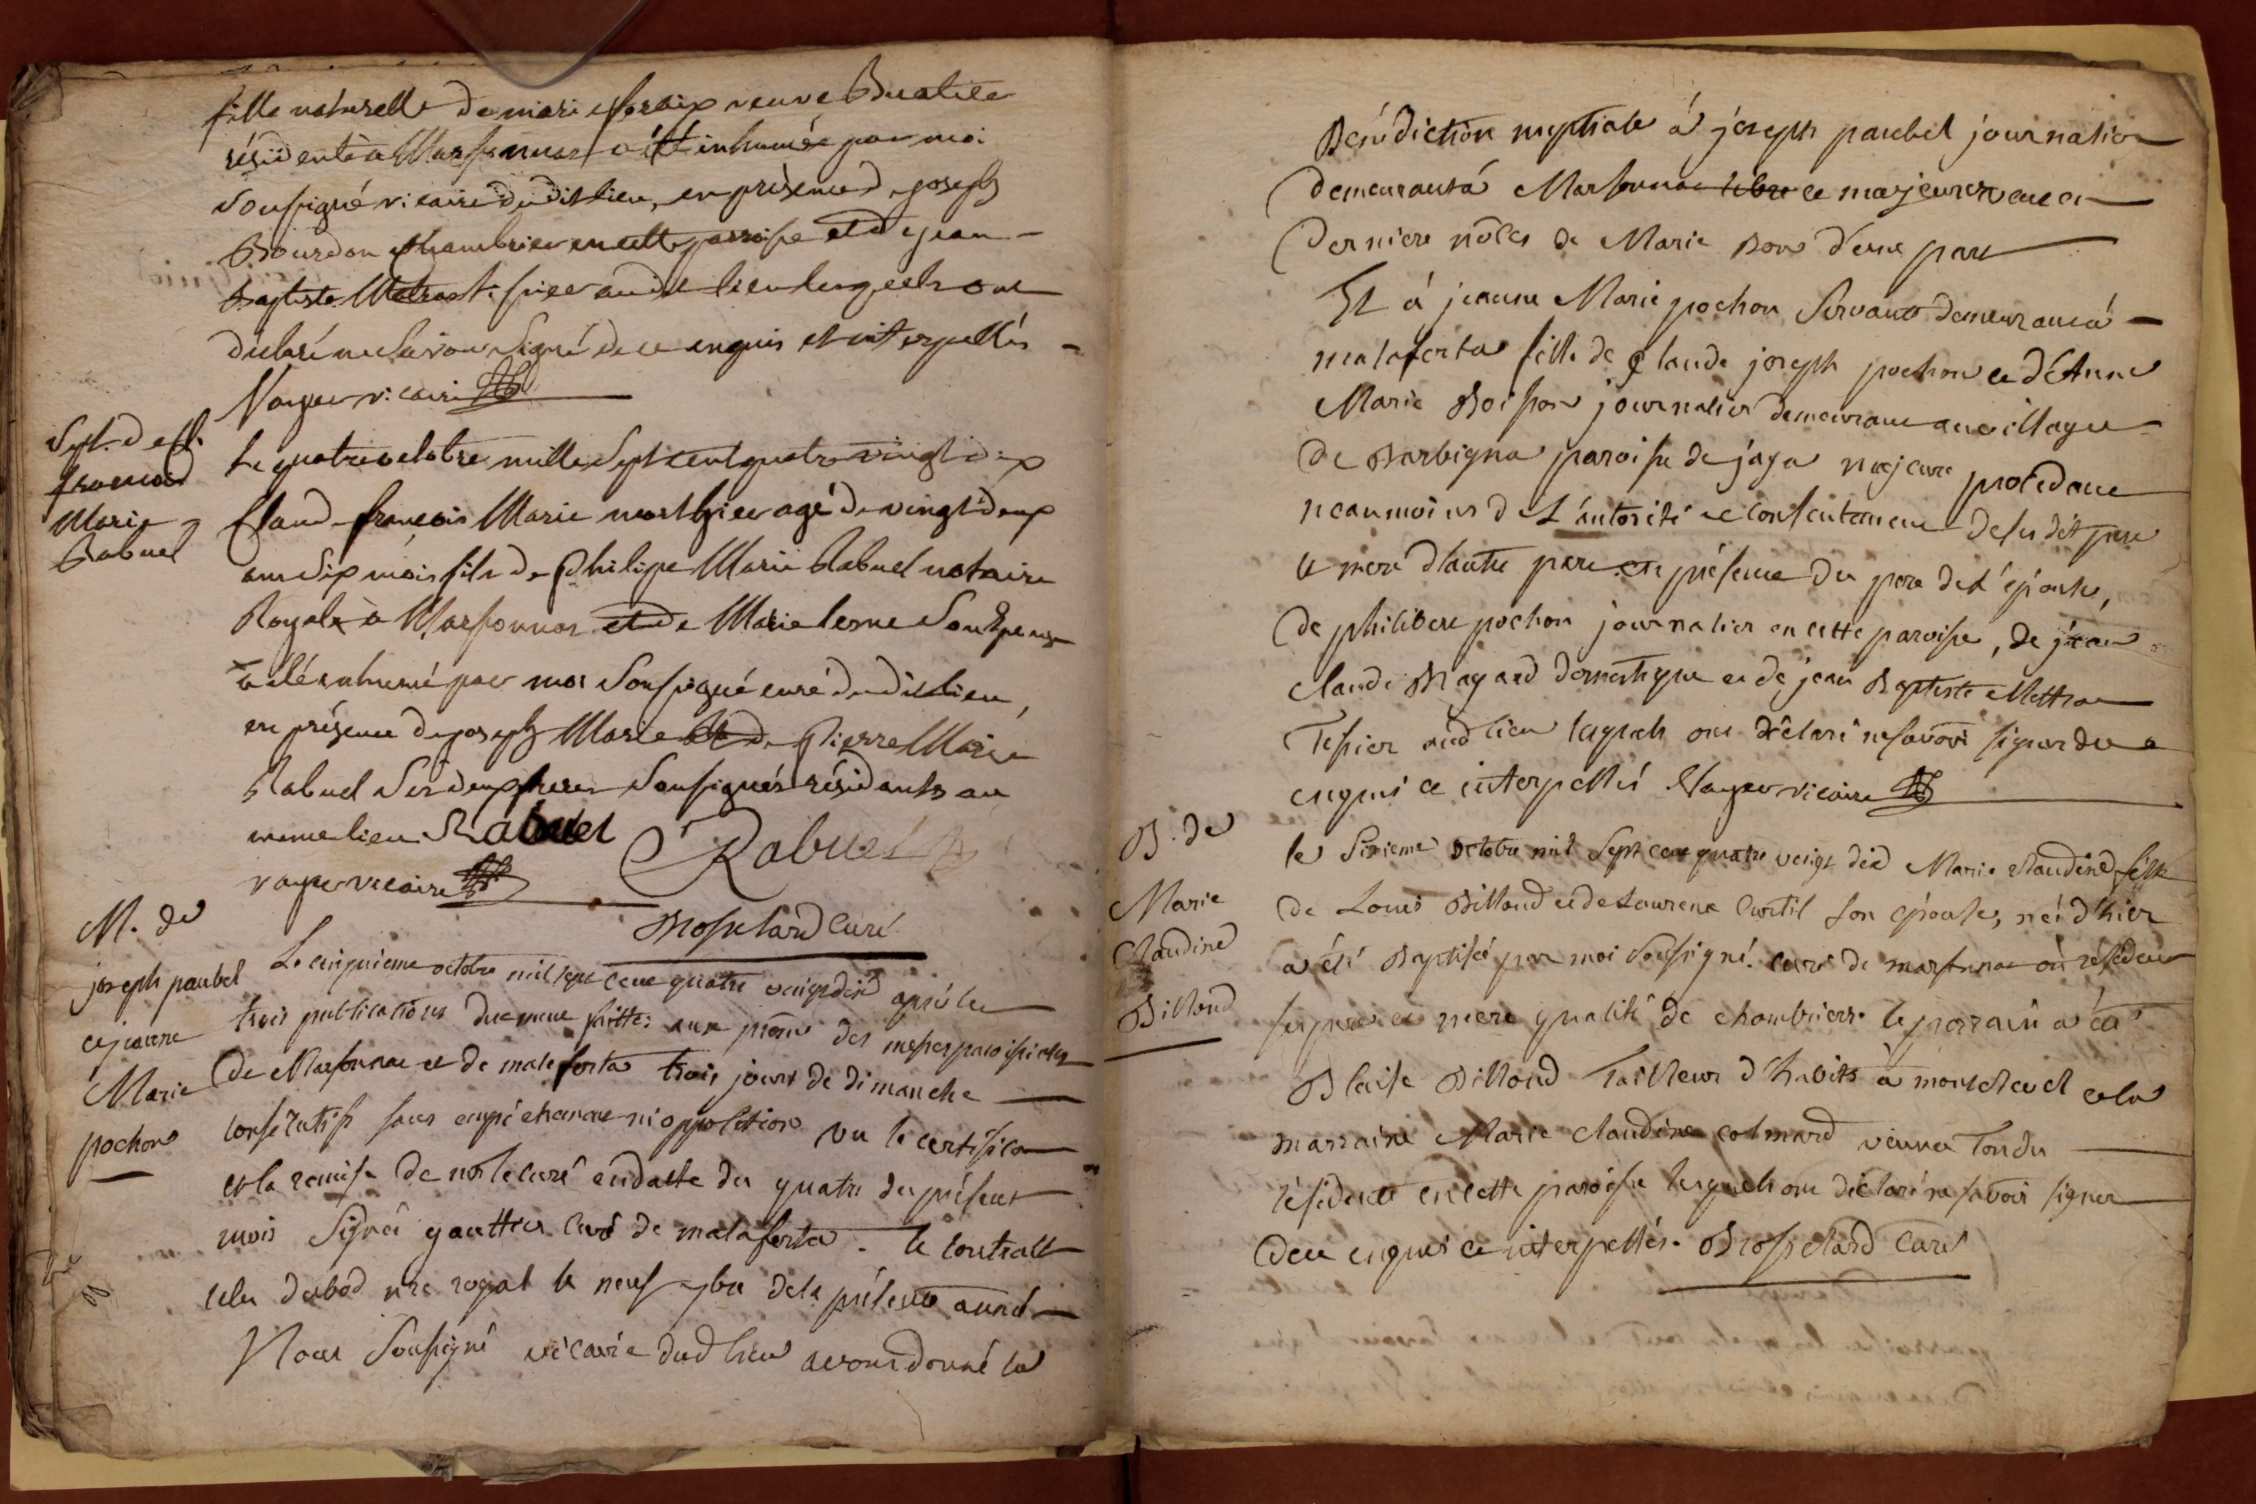 fille naturelle de marie veuve
résidente à Marsonnas a été inhumée par moi
soussigné vicaire dudit lieu, en présence de joseph
Bourdon chambrier en cette paroisse et de jean
Baptiste audit lieu lesquels ont
déclaré ne savoir signé de ce enquis et interpellés
vicaire
Sept. de
françois
Marie
Rabuel
Le quatre octobre mille sept cent quatre vingt dix
Claude françois Marie agé de vingt deux
ans dix mois fils de Philipe Marie Rabuel notaire
Royal à Marsonnas et de Marie son épouse
a été inhumé par moi soussigné curé dudit lieu,
en présence de joseph Marie et de Pierre Marie
Rabuel ses deux freres soussignés résidants au
meme lieu Rabuel Rabuel
vicaire
curé
M. de
joseph paubel
et jeanne
Marie
pochon
Le cinquieme octobre mil sept cent quatre vingt dix après les
trois publications duement faittes aux prônes des messes paroissiales
de Marsonnas et de malaforta trois jours de dimanche
consécutifs sans empéchement ni opposition vu le certificat
et la remise de mr le curé en datte du quatre du présent
mois signé gauttier curé de malaforta. le contract
royal le neuf 7bre de la présente année
Nous soussigné vicaire dud lieu avons donné la
Bénédiction nuptiale à joseph paubel journalier
demeurant à Marsonnas et majeur veuf en
dernière nôces de Marie d'une part
Et à jeanne Marie pochon servante demeurant à
malaforta fille de Claude joseph pochon et d'Anne
Marie Boisson journalier demeurant au village
de Barbigna paroisse de jaya majeure procédant
neanmoins de L'autorité et consentement de ses dit pere
et mere d'autre part en présence du pere de L'épouse,
de philibert pochon journalier en cette paroisse, de jean
claude domestique et de jean Baptiste
Tessier aud lieu lesquels ont déclaré ne savoir signer de ce
enquis et interpellés vicaire
B. de
Marie
Claudine
Billoud
le sixieme octobre mil sept cent quatre vingt dix Marie claudine fille
de Louis Billoud et de Laurence Curtil son épouse, née d'hier
a été Baptisée par moi soussigné curé de marsonnas où résident
ses pere et mere qualité de chambriers le parrain a été
Blaise Billoud Tailleur d'habits à montrevel et la
marraine Marie claudine veuve Tondu
résidente en cette paroisse lesquels ont déclaré ne savoir signer
de ce enquis et interpellés. curé